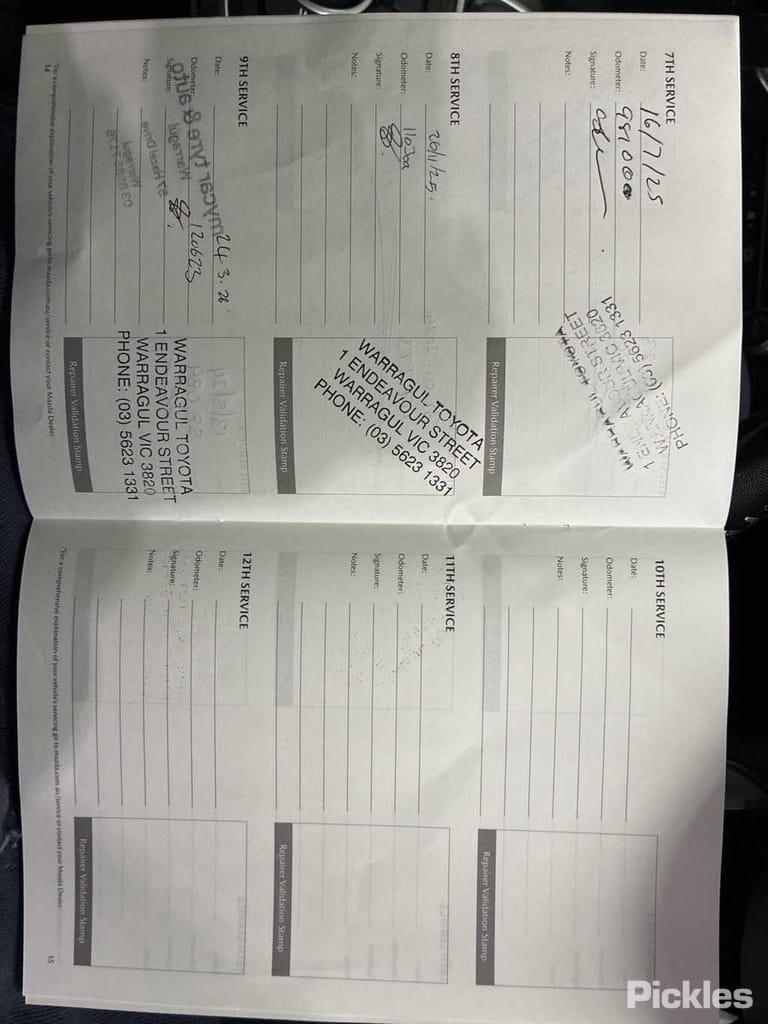 7TH SERVICE
Date: 16/7/25
Odometer:
Signature:
Notes:
Repairer Validation Stamp
WARRAGUL TOYOTA
VIC 3820
PHONE: (03) 5623 1331
8TH SERVICE
Date: 26/11/25.
Odometer:
Signature:
Notes:
Repairer Validation Stamp
WARRAGUL TOYOTA
1 ENDEAVOUR STREET
WARRAGUL VIC 3820
PHONE: (03) 5623 1331
9TH SERVICE
Date: 24.3.26
Odometer: 120623
Signature:
Notes:
mycar tyre & auto
Warragul
Repairer Validation Stamp
WARRAGUL TOYOTA
1 ENDEAVOUR STREET
WARRAGUL VIC 3820
PHONE: (03) 5623 1331
*For a comprehensive explanation of your vehicle's servicing go to mazda.com.au/service or contact your Mazda Dealer
14
10TH SERVICE
Date:
Odometer:
Signature:
Notes:
Repairer Validation Stamp
11TH SERVICE
Date:
Odometer:
Signature:
Notes:
Repairer Validation Stamp
12TH SERVICE
Date:
Odometer:
Signature:
Notes:
Repairer Validation Stamp
*For a comprehensive explanation of your vehicle's servicing go to mazda.com.au/service or contact your Mazda Dealer
15
Pickles